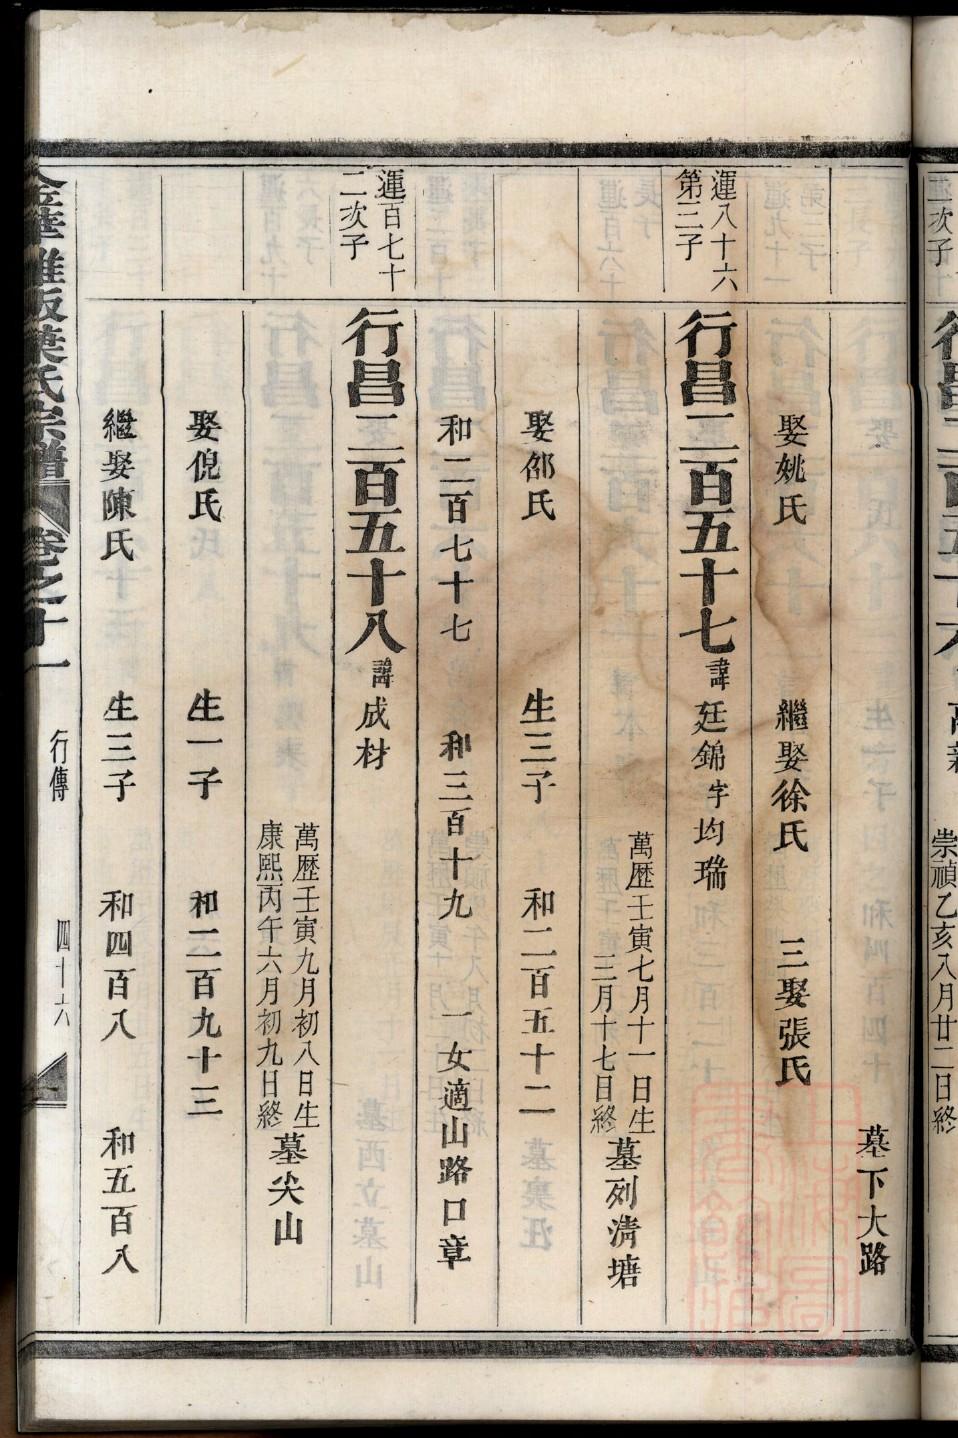 墓下大路
娶姚氏 繼娶徐氏 三娶張氏
運八十六
第三子
行昌二百五十七 諱廷錦 字均瑞
萬歷壬寅七月十一日生
三月十七日終
墓列淸塘
娶邵氏 生三子 和二百五十二
和二百七十七 和三百十九 一女適山路口章
運百七十
二次子
行昌二百五十八 諱成材
萬歷壬寅九月初八日生
康熙丙午六月初九日終
墓尖山
娶倪氏 生一子 和二百九十三
繼娶陳氏 生三子 和四百八 和五百八
氏宗譜 卷之十一 行傳 四十六
崇禎乙亥八月廿二日終